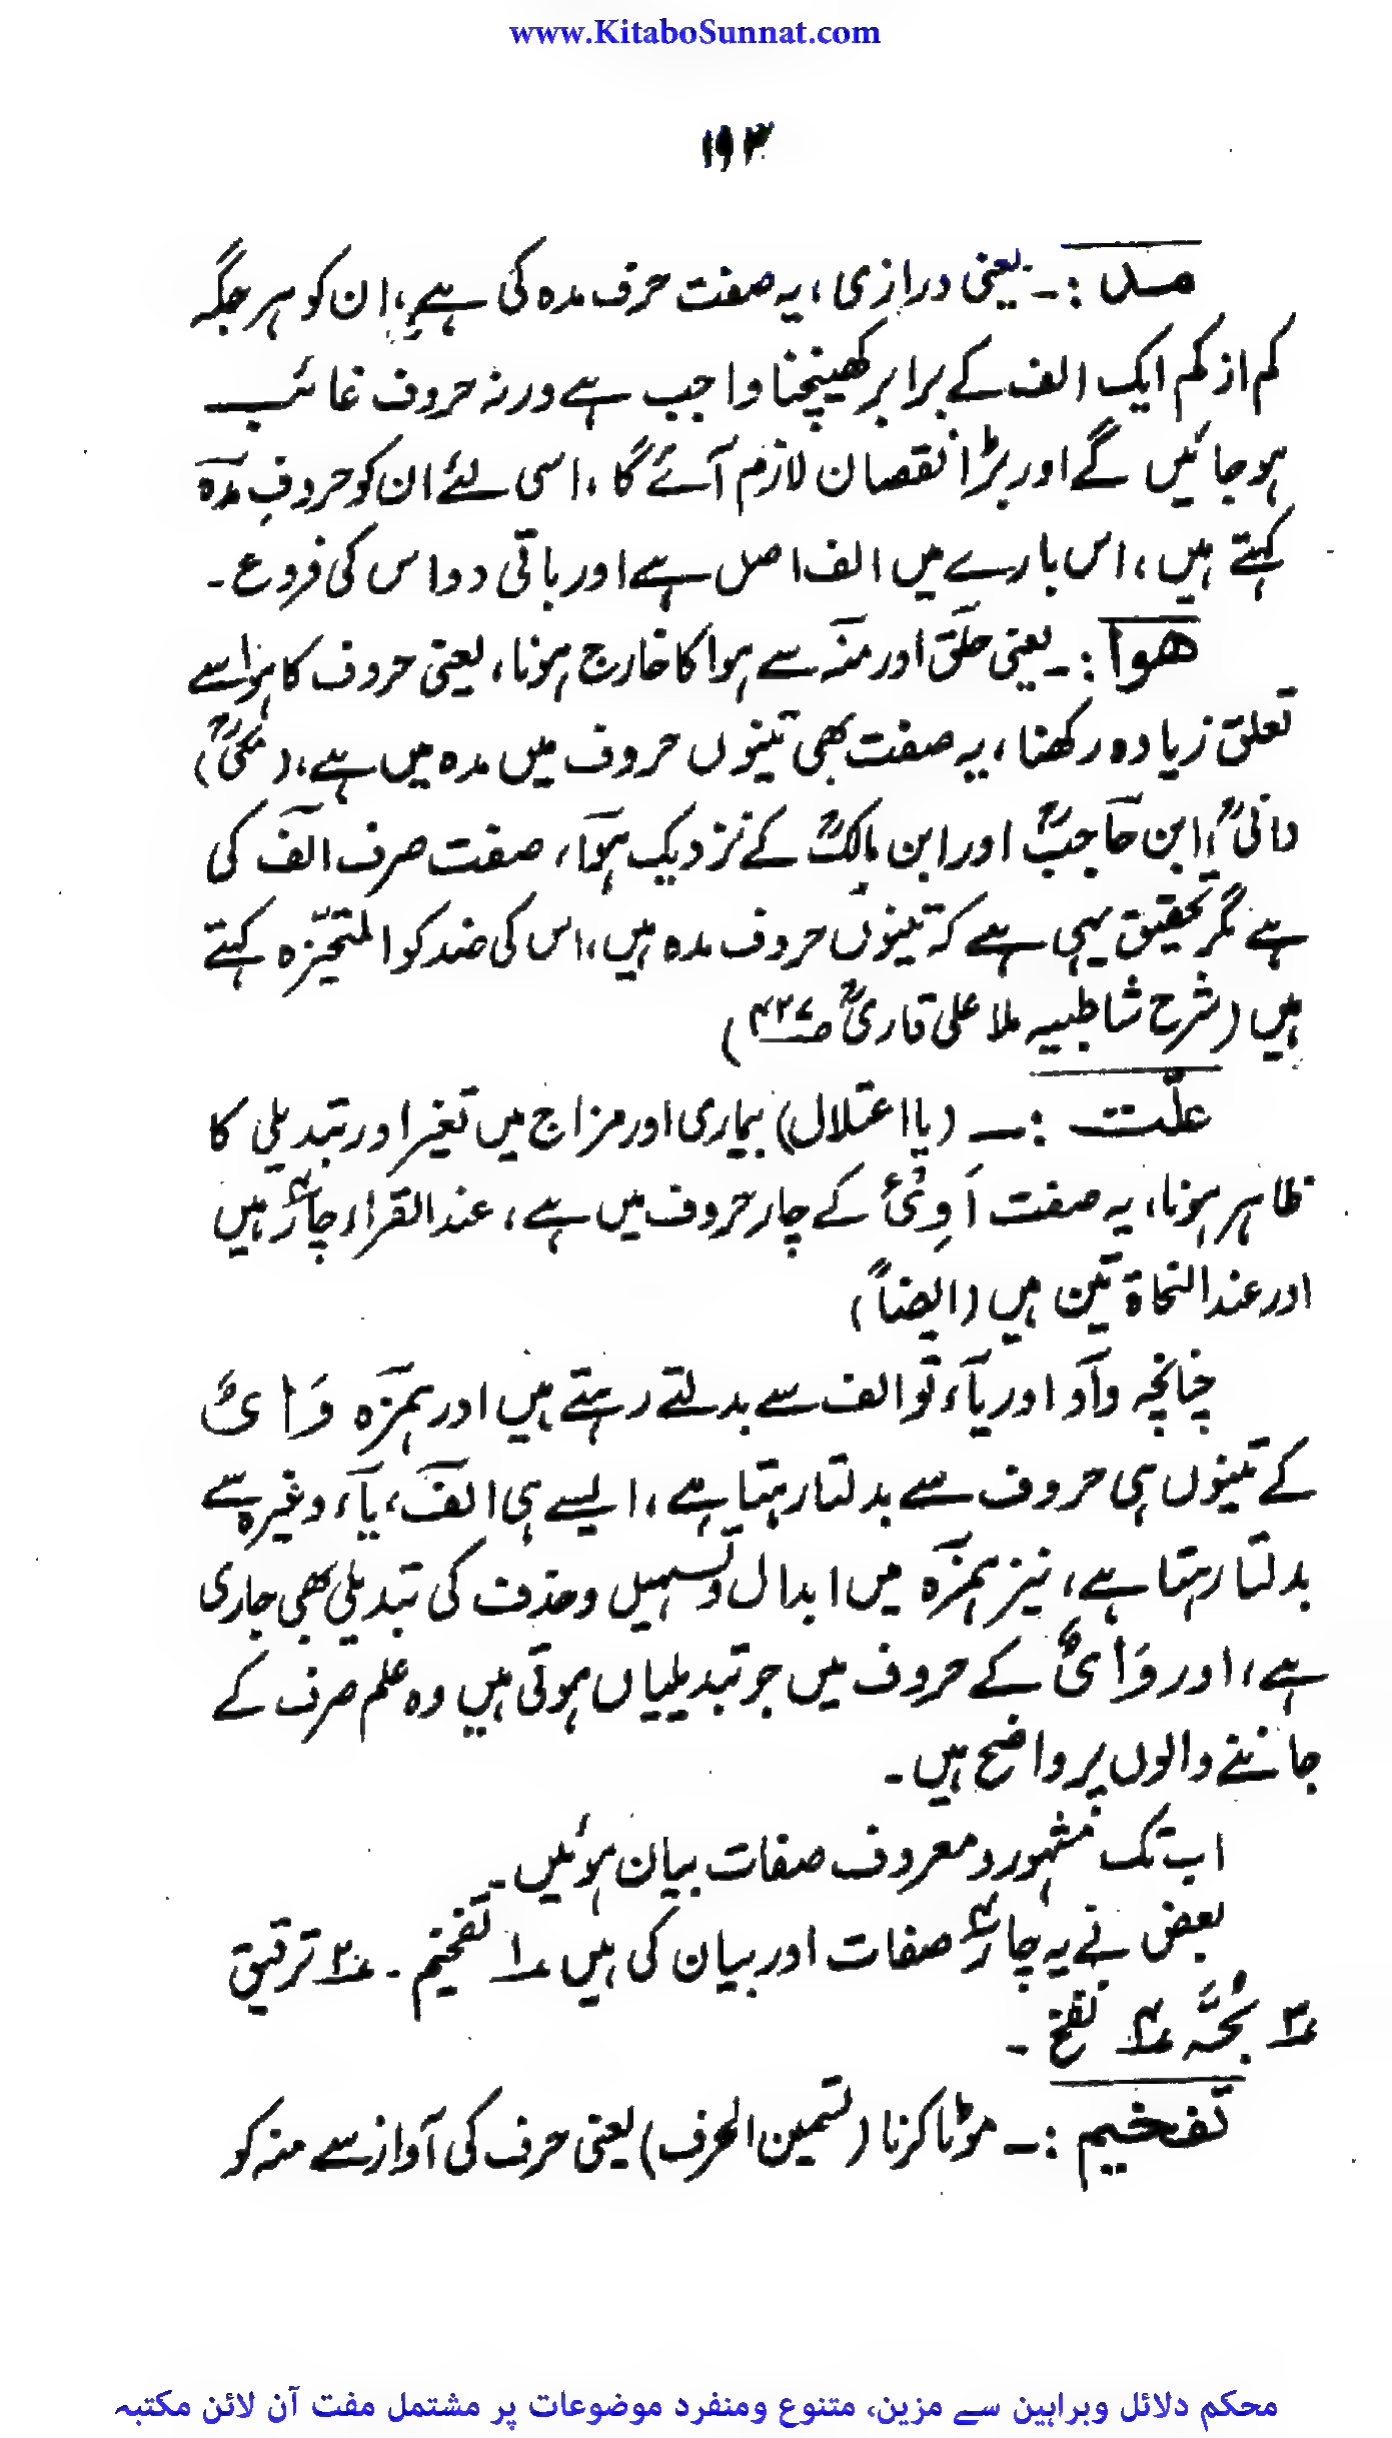 www.KitaboSunnat.com
۱۹۳
مد :۔ یعنی درازی، یہ صفت حرف مدہ کی ہے، ان کو ہر جگہ
کم از کم ایک الف کے برابر کھینچنا واجب ہے ورنہ حروف غائب
ہوجائیں گے اور بڑا نقصان لازم آئے گا، اسی لئے ان کو حروفِ مدہ
کہتے ہیں، اس بارے میں الف اصل ہے اور باقی دو اس کی فروع۔
ھوا :۔ یعنی حلق اور منہ سے ہوا کا خارج ہونا، یعنی حروف کا ہوا سے
تعلق زیادہ رکھنا، یہ صفت بھی تینوں حروف میں مدہ میں ہے، (مکیؒ)
دانیؒ، ابن حاجبؒ اور ابن مالکؒ کے نزدیک ہوا، صفت صرف الف کی
ہے مگر تحقیق یہی ہے کہ تینوں حروف مدہ ہیں، اس کی ضد کو المتحیّزہ کہتے
ہیں (شرح شاطبیہ ملا علی قاریؒ صـ۴۲۷)
علّت :۔ (یا اعتلال) بیماری اور مزاج میں تغیر اور تبدیلی کا
ظاہر ہونا، یہ صفت اَوِیُٔ کے چار حروف میں ہے، عند القراء چار۴ ہیں
اور عند النحاۃ تین ہیں (ایضاً)
چنانچہ واؤ اور یاء تو الف سے بدلتے رہتے ہیں اور ہمزہ وَ ا یُ
کے تینوں ہی حروف سے بدلتا رہتا ہے، ایسے ہی الف، یاء وغیرہ سے
بدلتا رہتا ہے، نیز ہمزہ میں ابدال و تسہیل و حذف کی تبدیلی بھی جاری
ہے، اور وَ ا یٌ کے حروف میں جو تبدیلیاں ہوتی ہیں وہ علم صرف کے
جاننے والوں پر واضح ہیں۔
اب تک مشہور و معروف صفات بیان ہوئیں۔
بعض نے یہ چار۴ صفات اور بیان کی ہیں ۱؎ تفخیم۔ ۲؎ ترقیق
۳؎ بُحَّہ ۴؎ نفخ۔
تفخیم :۔ موٹا کرنا (تسمین الحرف) یعنی حرف کی آواز سے منہ کو
محکم دلائل وبراہین سے مزین، متنوع ومنفرد موضوعات پر مشتمل مفت آن لائن مکتبہ